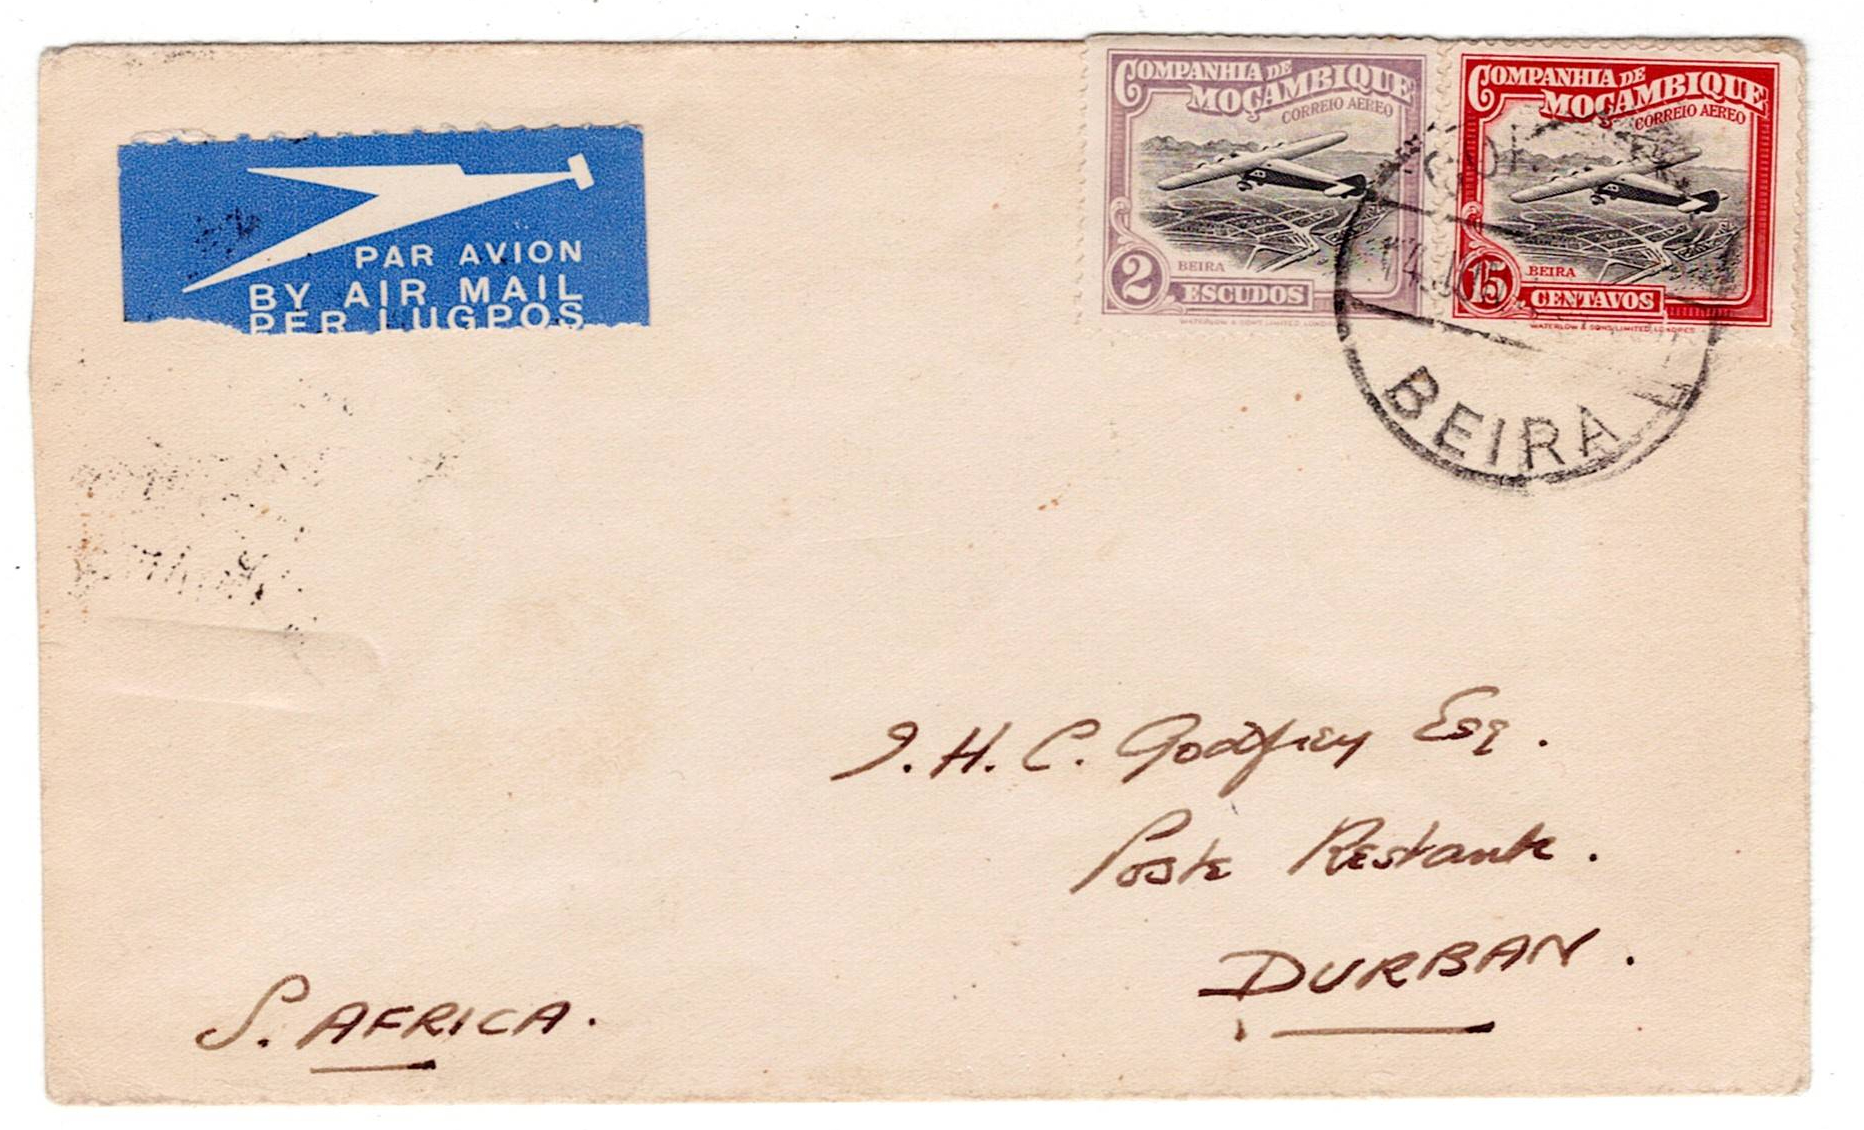 PAR AVION
BY AIR MAIL
PER LUGPOS
COMPANHIA DE
MOÇAMBIQUE
CORREIO AEREO
BEIRA
2 ESCUDOS
WATERLOW & SONS LIMITED, LONDRES
COMPANHIA DE
MOÇAMBIQUE
CORREIO AEREO
BEIRA
15 CENTAVOS
WATERLOW & SONS LIMITED, LONDRES
BEIRA
J. H. C. Godfrey Esq.
Poste Restante.
DURBAN.
S. AFRICA.